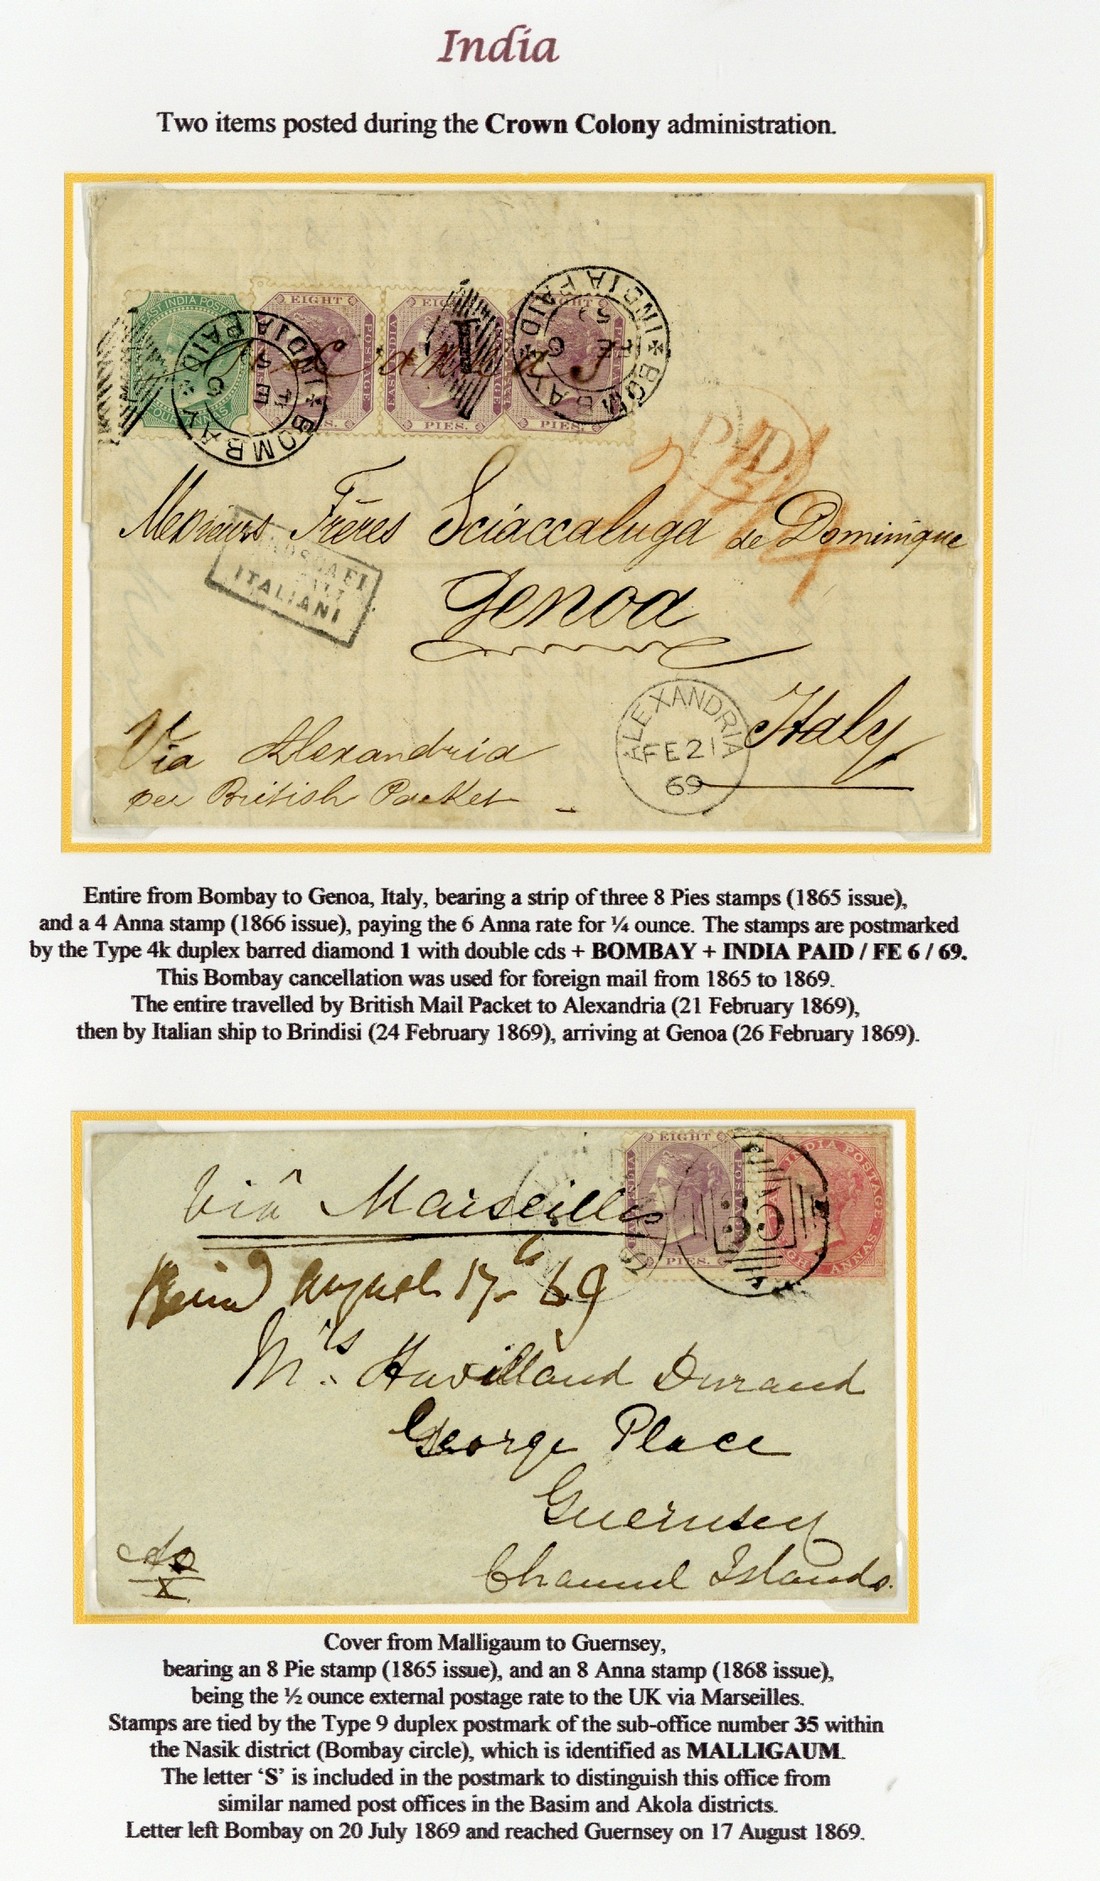 India
Two items posted during the Crown Colony administration.
EAST INDIA POSTAGE
FOUR ANNAS
EIGHT
POSTAGE
PIES.
EIGHT
INDIA
POSTAGE
PIES.
EIGHT
PIES.
BOMBAY
INDIA PAID
FE
6
1
BOMBAY
INDIA PAID
FE
6
PAID
Messieurs Frères Sciaccaluga de Dominique
Genoa
Italy
ITALIANI
ALEXANDRIA
FE 21
69
Via Alexandria
per British Packet
Entire from Bombay to Genoa, Italy, bearing a strip of three 8 Pies stamps (1865 issue),
and a 4 Anna stamp (1866 issue), paying the 6 Anna rate for ¼ ounce. The stamps are postmarked
by the Type 4k duplex barred diamond 1 with double cds + BOMBAY + INDIA PAID / FE 6 / 69.
This Bombay cancellation was used for foreign mail from 1865 to 1869.
The entire travelled by British Mail Packet to Alexandria (21 February 1869),
then by Italian ship to Brindisi (24 February 1869), arriving at Genoa (26 February 1869).
Viâ Marseilles
August 17th 69
EIGHT
INDIA
POSTAGE
PIES.
35
INDIA POSTAGE
EIGHT ANNAS
Mrs Havilland Durand
George Place
Guernsey
Channel Islands.
Cover from Malligaum to Guernsey,
bearing an 8 Pie stamp (1865 issue), and an 8 Anna stamp (1868 issue),
being the ½ ounce external postage rate to the UK via Marseilles.
Stamps are tied by the Type 9 duplex postmark of the sub-office number 35 within
the Nasik district (Bombay circle), which is identified as MALLIGAUM.
The letter ‘S’ is included in the postmark to distinguish this office from
similar named post offices in the Basim and Akola districts.
Letter left Bombay on 20 July 1869 and reached Guernsey on 17 August 1869.